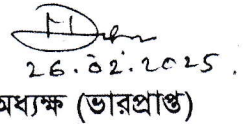 26.02.2025.
অধ্যক্ষ (ভারপ্রাপ্ত)